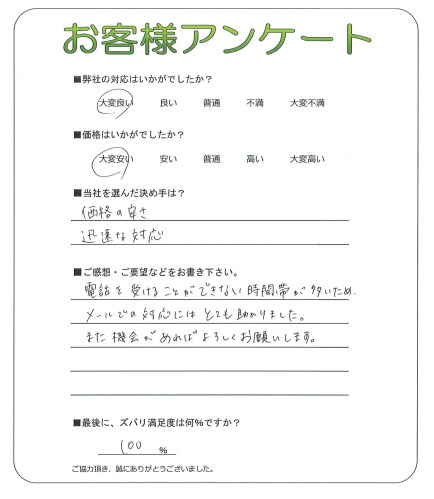 お客様アンケート
■弊社の対応はいかがでしたか？
大変良い 良い 普通 不満 大変不満
■価格はいかがでしたか？
大変安い 安い 普通 高い 大変高い
■当社を選んだ決め手は？
価格の安さ
迅速な対応
■ご感想・ご要望などをお書き下さい。
電話を受けることができない時間帯が多いため、
メールでの対応にはとても助かりました。
また機会があればよろしくお願いします。
■最後に、ズバリ満足度は何%ですか？
100 %
ご協力頂き、誠にありがとうございました。